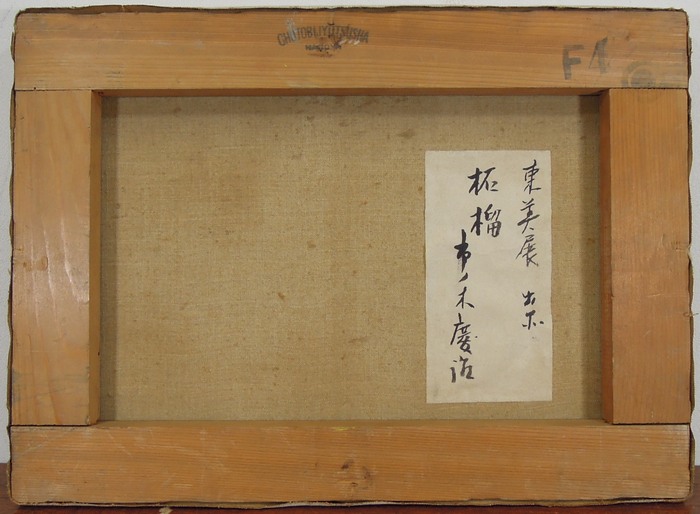 F4
東美展 出品
柘榴
市ノ木慶治